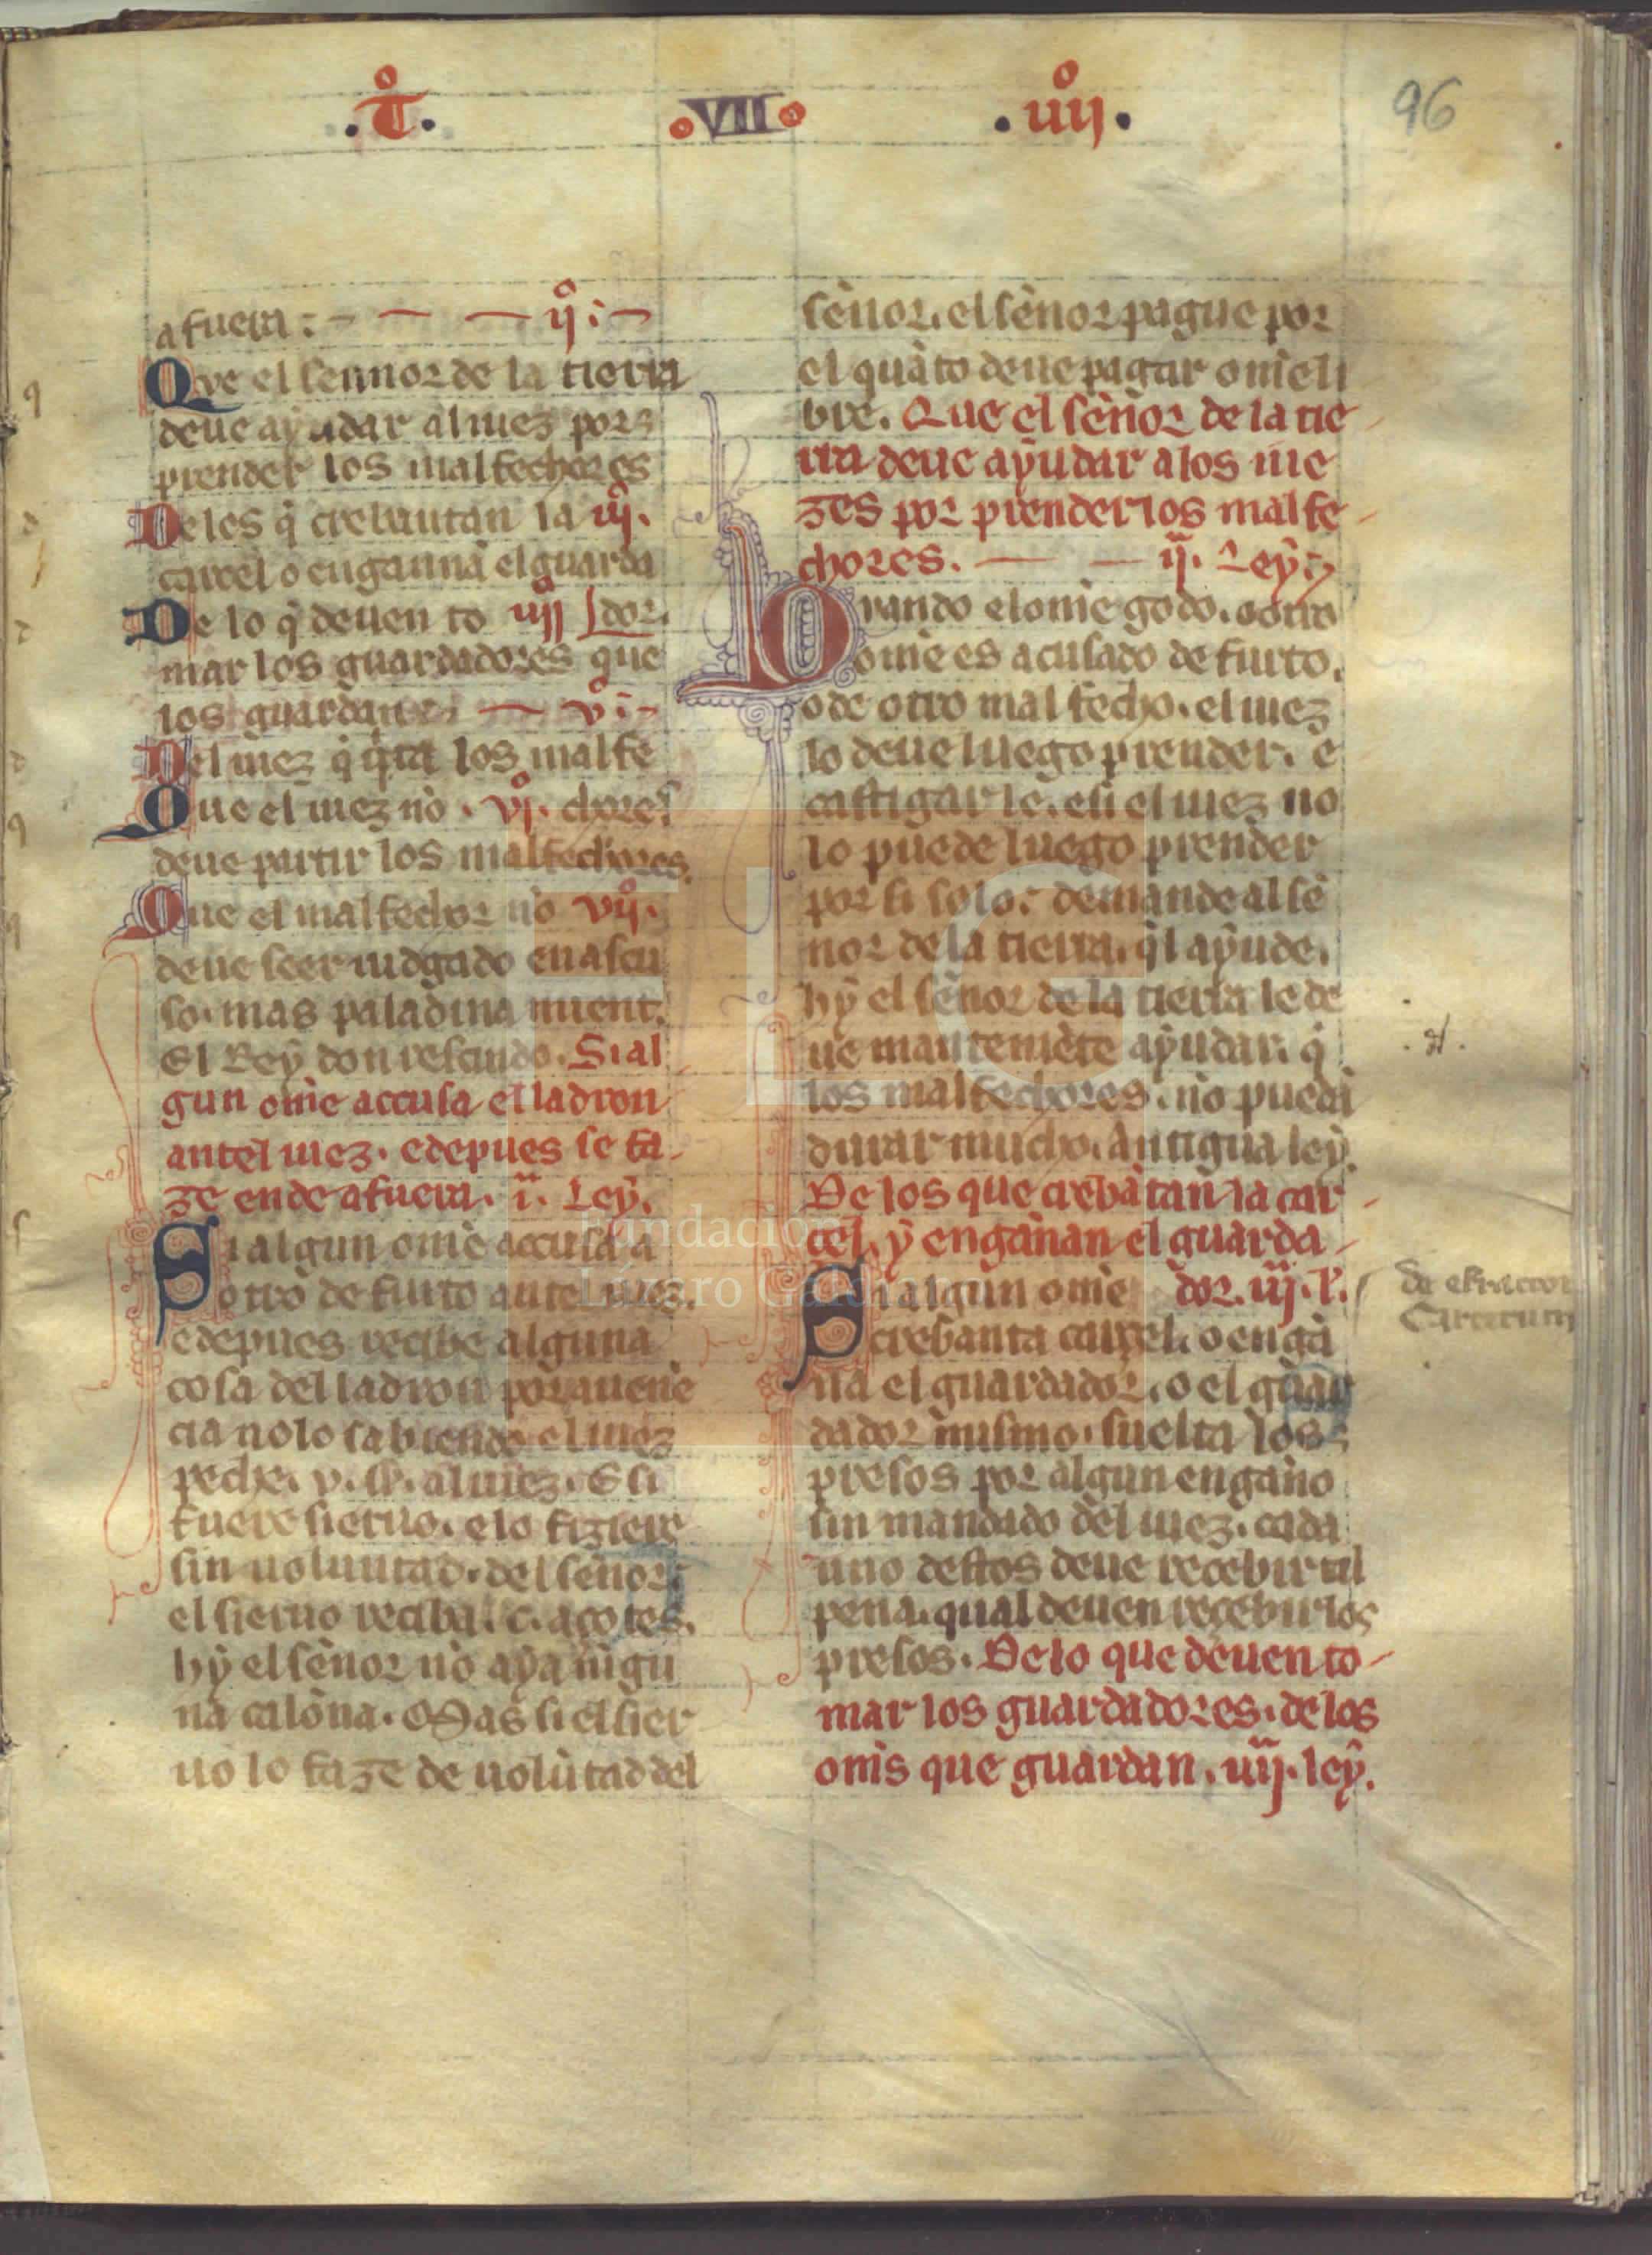 .T̊. .VII. .iiij̊. 96
afuera: ij̊:
Qve el sennor de la tierra
deue ayudar al iuez por
prender los malfechores
De los q̄ crebantan la iij̊.
carcel o engannā el guarda
De lo q̄ deuen to iiij̊ dor.
mar los guardadores que
los guardan v̊:
Del iuez q̄ los malfe
Que el iuez nō . vj̊. chores
deue partir los malfechores.
Que el malfechor nō vij̊.
deue seer iudgado en ascu
so. mas paladina mient.
El Rey don rescindo. Si al
gun om̄e accusa el ladron
antel iuez. e depues se fa
ze ende afuera. i. Ley.
Si algun om̄e accusa a
otro de furto antel iuez.
e depues recibe alguna
cosa del ladron por auenē
cia no lo sabiendo el iuez
peche. v. ss. al iuez. E si
fuere sieruo. e lo fiziere
sin uoluntad. del sēnor.
el sieruo reciba. c. açotes.
hy el sēnor nō aya nīgu
na calōna. Mas si el sier
uo lo faze de uolūtad del
sēnor. el sēnor pague por
el quāto deue pagar om̄e li
bre. Que el sēnor de la tie
rra deue ayudar a los iue
zes por prender los malfe
chores. ij. Ley:
Quando el om̄e godo. o otro
om̄e es acusado de furto.
o de otro mal fecho. el iuez
lo deue luego prender. e
castigarle. e si el iuez no
lo puede luego prender
por si solo: demande al sē
nor de la tierra. q̄l ayude.
hy el sēnor de la tierra le de
ue manteniēte ayudar. q̄
los malfechores. nō puedā
durar mucho. Antigua ley.
De los que crebātan la car
cel. y engānan el guarda
Si algun om̄e dor. iij. l.
crebanta carcel. o engā
na el guardador. o el guar
dador mismo. suelta los
presos por algun engāno
sin mandado del iuez. cada
uno destos deue recebir tal
pena. qual deuen recebir los
presos. De lo que deuen to
mar los guardadores. de los
om̄s que guardan. iiij. ley.
de
Carcerum
TLG
Fundación
Lázaro Galdiano